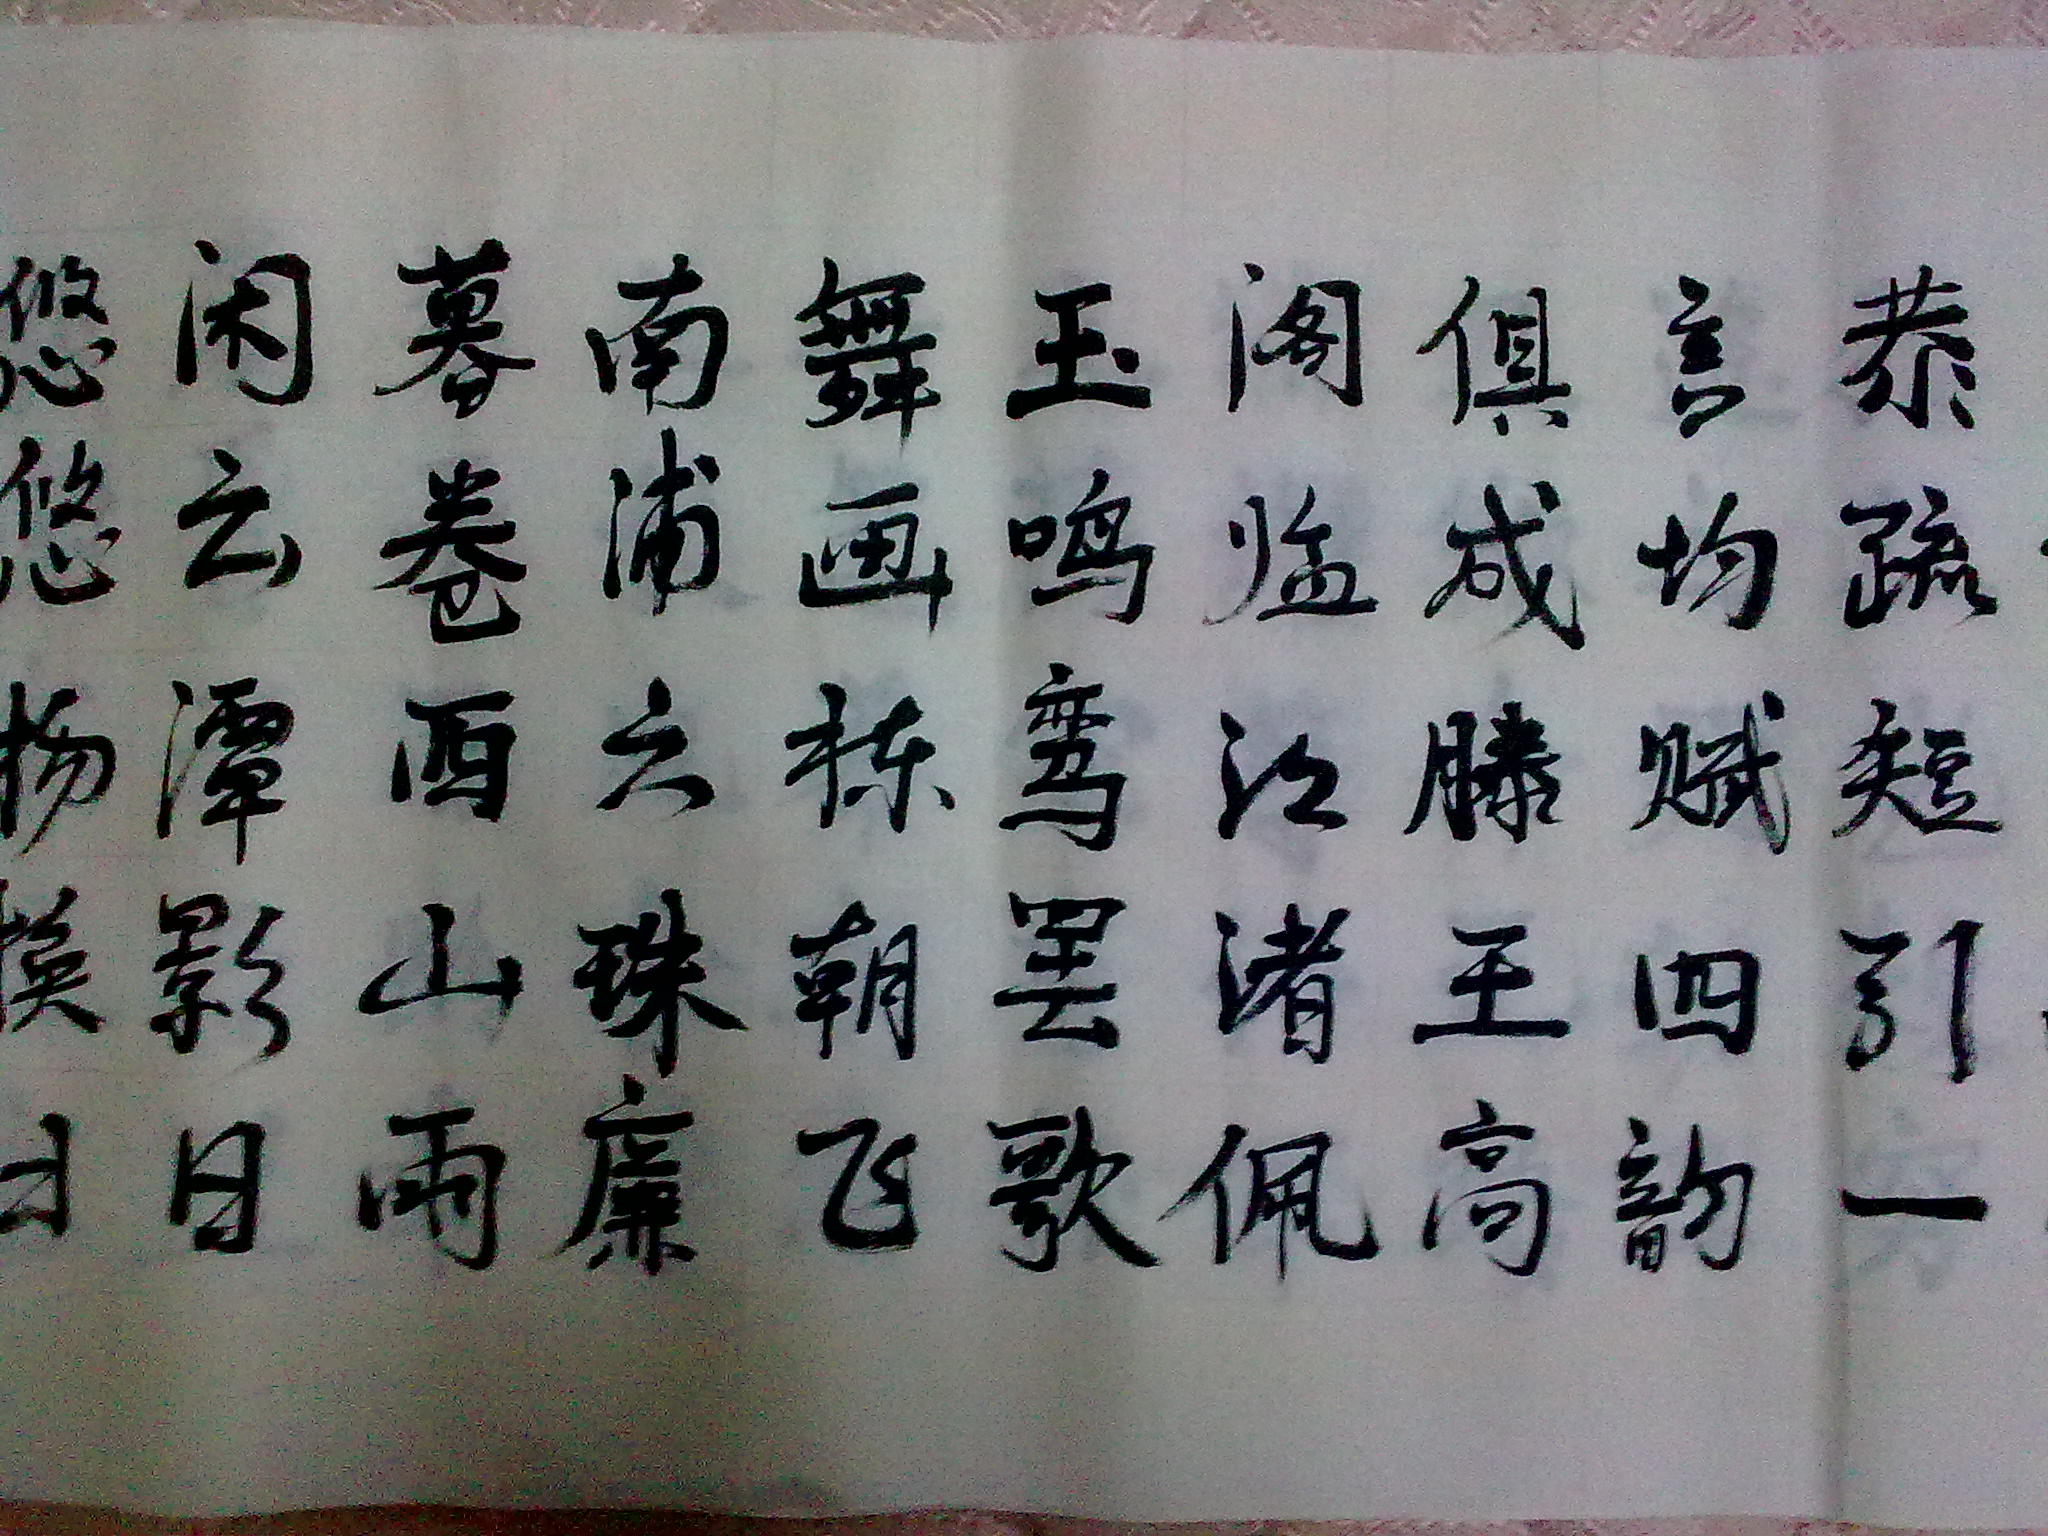 恭疏短引一
言均赋四韵
俱成滕王高
阁临江渚佩
玉鸣鸾罢歌
舞画栋朝飞
南浦云珠廉
暮卷西山雨
闲云潭影日
悠悠物换日